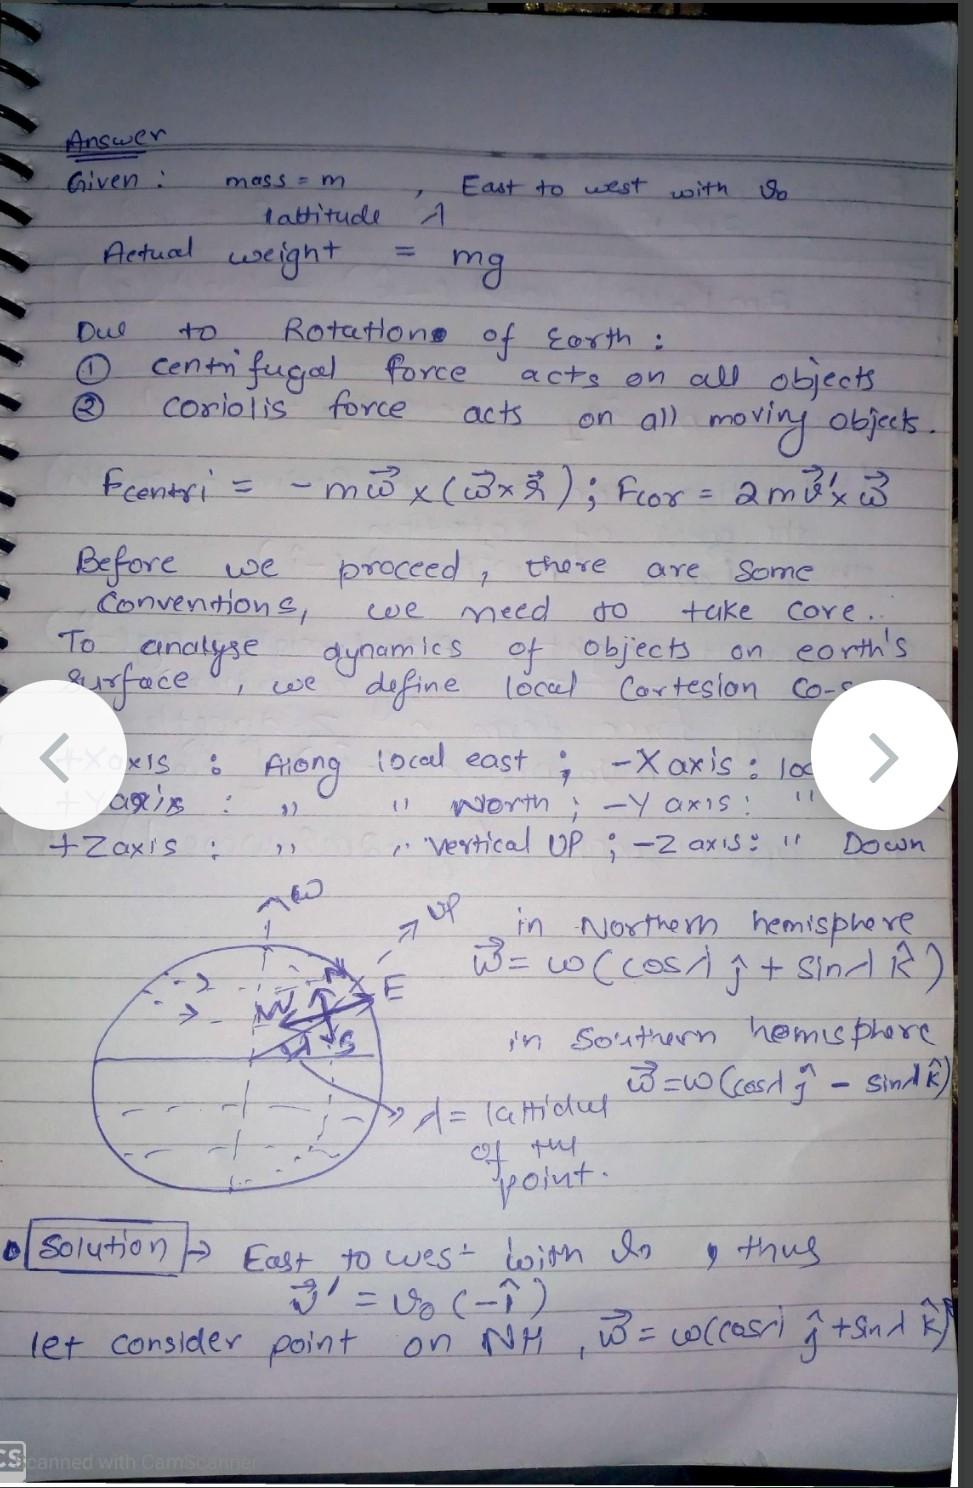 Answer
Given : mass = m , East to west with v₀
lattitude λ
Actual weight = mg
Due to Rotation of Earth :
① centrifugal force acts on all objects
② coriolis force acts on all moving objects.
Fcentri = - m ω⃗ × (ω⃗ × r⃗) ; Fcor = 2m v⃗' × ω⃗
Before we proceed, there are some
conventions, we need to take care..
To analyse dynamics of objects on earth's
surface , we define local Cartesian co-
+X axis : Along local east ; -X axis : loc
+Y axis : ,, ,, North ; -Y axis : ,,
+Z axis : ,, ,, vertical UP ; -Z axis : ,, Down
ω
UP
N
E
W
S
λ
in Northern hemisphere
ω⃗ = ω (cosλ ĵ + sinλ k̂)
in Southern hemisphere
ω⃗ = ω (cosλ ĵ - sinλ k̂)
λ = lattidue
of the
point.
Solution → East to west with v₀ , thus
v⃗' = v₀ (-î)
let consider point on NH , ω⃗ = ω(cosλ ĵ + sinλ k̂)
CS Scanned with CamScanner